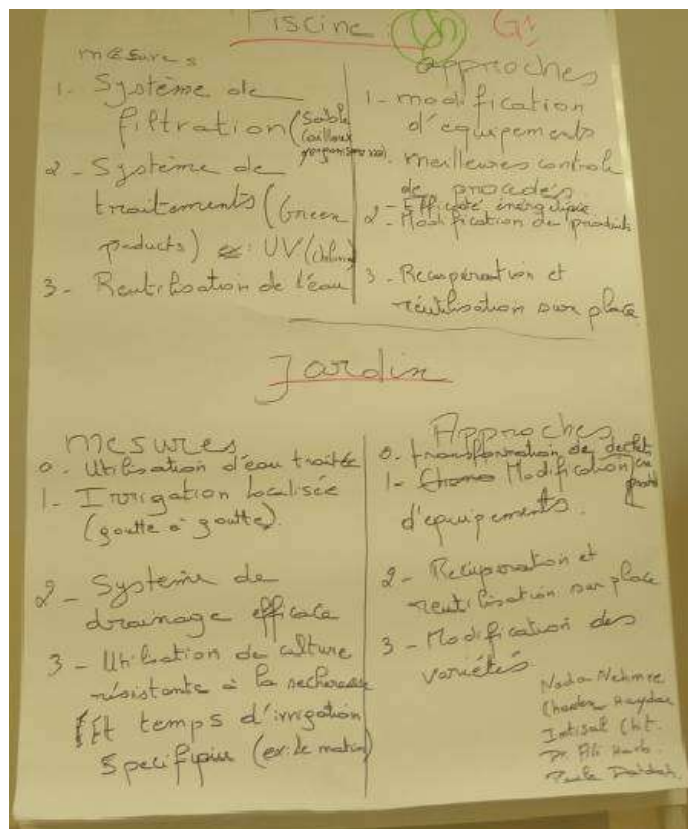 Piscine G1
mesures
1- Système de
filtration (Sable
cailloux
2- Système de
traitements (Green
products) ex: UV (
3- Reutilisation de l'eau
approches
1- modification
d'equipements
. meilleures controle
de procedés
- Efficacité énergétique
2- Modification de produits
3- Recupération et
réutilisation sur place
Jardin
mesures
0- Utilisation d'eau traitée
1- Irrigation localisée
(goutte à goutte).
2- Système de
drainage efficace
3- Utilisation de culture
résistante à la secheresse
Et temps d'irrigation
specifique (ex: le matin)
Approches
0- transformation de dechet
en
1- Modification
d'equipements.
2- Recuperation et
reutilisation sur place
3- Modification des
variétés
Nada Nehmee
Haydar
Intisal Chit.
Dr. Ali Harb.